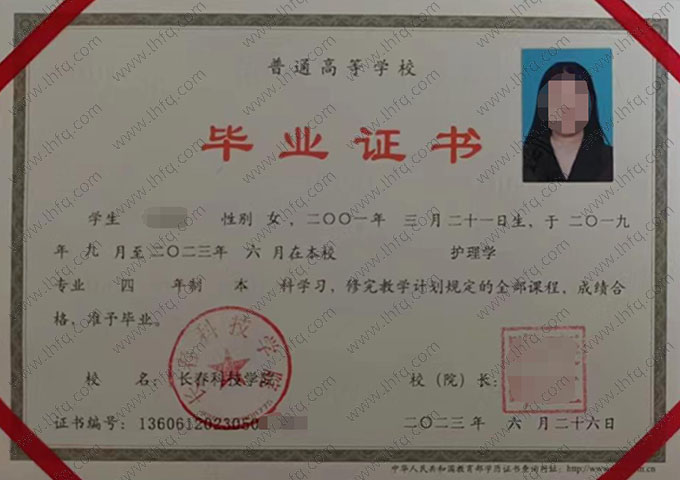 普通高等学校
毕业证书
学生 性别 女，二〇〇一年 三 月二十一日生，于 二〇一九
年 九 月至二〇二三年 六 月在本校 护理学
专业 四 年制 本 科学习，修完教学计划规定的全部课程，成绩合
格，准予毕业。
校 名：长春科技学院 校（院）长：
证书编号：1360612023050
二〇二三年 六 月二十六日
中华人民共和国教育部学历证书查询网址：http://www.
www.lhfq.com